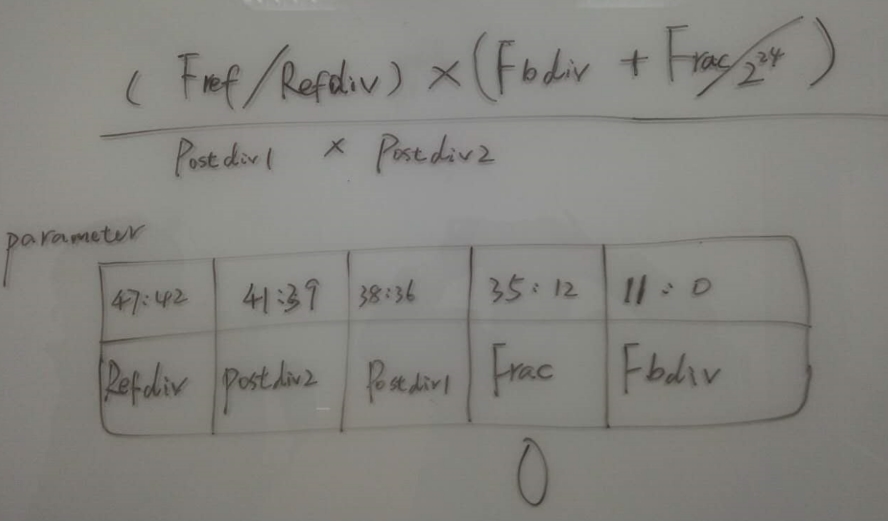 ( Fref/Refdiv) × (Fbdiv + Frac/2^24 )
Postdiv1 × Postdiv2
parameter
47:42 41:39 38:36 35:12 11:0
Refdiv Postdiv2 Postdiv1 Frac Fbdiv
0